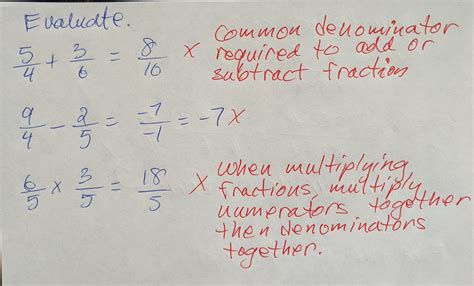 Evaluate.
5/4 + 3/6 = 8/10 × Common denominator
required to add or
subtract fraction
9/4 - 2/5 = -7/-1 = -7 ×
6/5 × 3/5 = 18/5 × When multiplying
fractions, multiply
numerators together
then denominators
together.